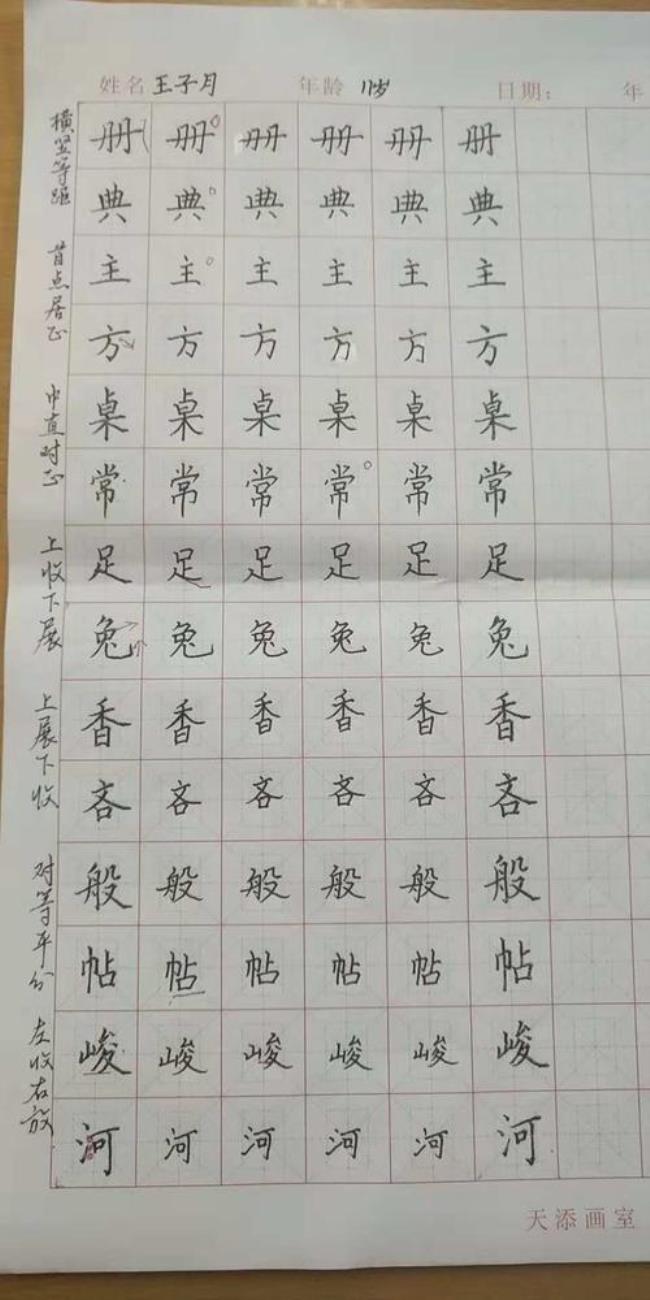 姓名 王子月 年龄 11岁 日期： 年
横竖等距
册 册 册 册 册 册
典 典 典 典 典 典
首点居正
主 主 主 主 主 主
方 方 方 方 方 方
中直对正
桌 桌 桌 桌 桌 桌
常 常 常 常 常 常
上收下展
足 足 足 足 足 足
兔 兔 兔 兔 兔 兔
上展下收
香 香 香 香 香 香
吝 吝 吝 吝 吝 吝
对等平分
般 般 般 般 般 般
帖 帖 帖 帖 帖 帖
左收右放
峻 峻 峻 峻 峻 峻
河 河 河 河 河 河
天添画室